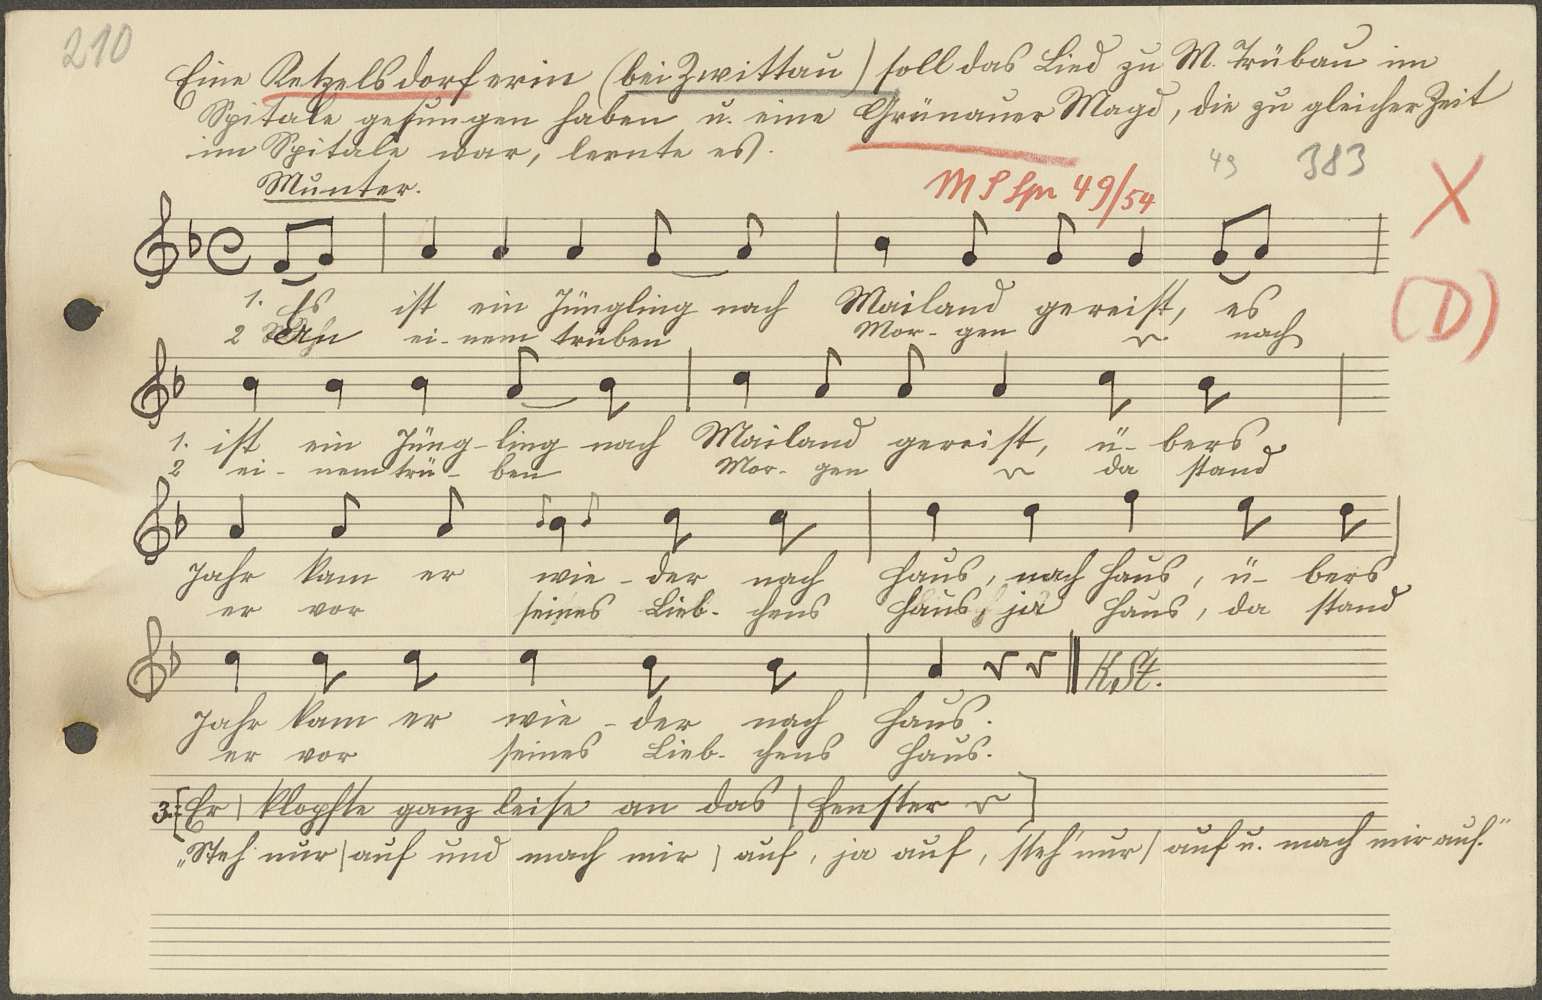 210
Eine Ketzelsdorferin (bei Zwittau) soll das Lied zu M. Trübau im
Spitale gesungen haben u. eine Grünauer Magd, die zu gleicher Zeit
im Spitale war, lernte es.
49 383
Munter.
49/54
X
(D)
1. Es ist ein Jüngling nach Mailand gereist, es
2 An ei-nem trüben Mor-gen nach
1. ist ein Jüng-ling nach Mailand gereist, ü-bers
2 ei-nem trü-ben Mor-gen da stand
Jahr kam er wie-der nach Haus, nach Haus, ü-bers
er vor seines Lieb-chens Haus, ja Haus, da stand
Jahr kam er wie-der nach Haus.
K.St.
er vor seines Lieb-chens Haus.
3. [Er | klopfte ganz leise an das | Fenster ]
„Steh nur | auf und mach mir | auf, ja auf, steh nur | auf u. mach mir auf."